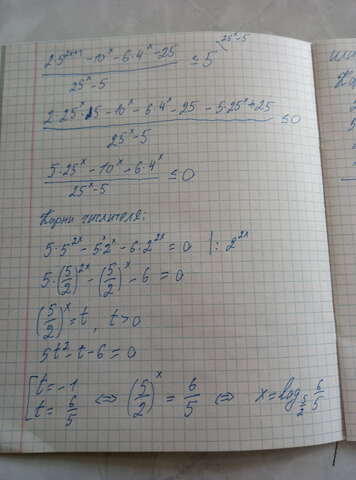 (2·5^(2x+1) - 10^x - 6·4^x - 25) / (25^x - 5) ≤ 5 \ 25^x - 5
(2·25^x·5 - 10^x - 6·4^x - 25 - 5·25^x + 25) / (25^x - 5) ≤ 0
(5·25^x - 10^x - 6·4^x) / (25^x - 5) ≤ 0
Корни числителя:
5·5^(2x) - 5^x·2^x - 6·2^(2x) = 0 | : 2^(2x)
5·(5/2)^(2x) - (5/2)^x - 6 = 0
(5/2)^x = t, t > 0
5t² - t - 6 = 0
[ t = -1
t = 6/5 ⇔ (5/2)^x = 6/5 ⇔ x = log_(5/2) 6/5